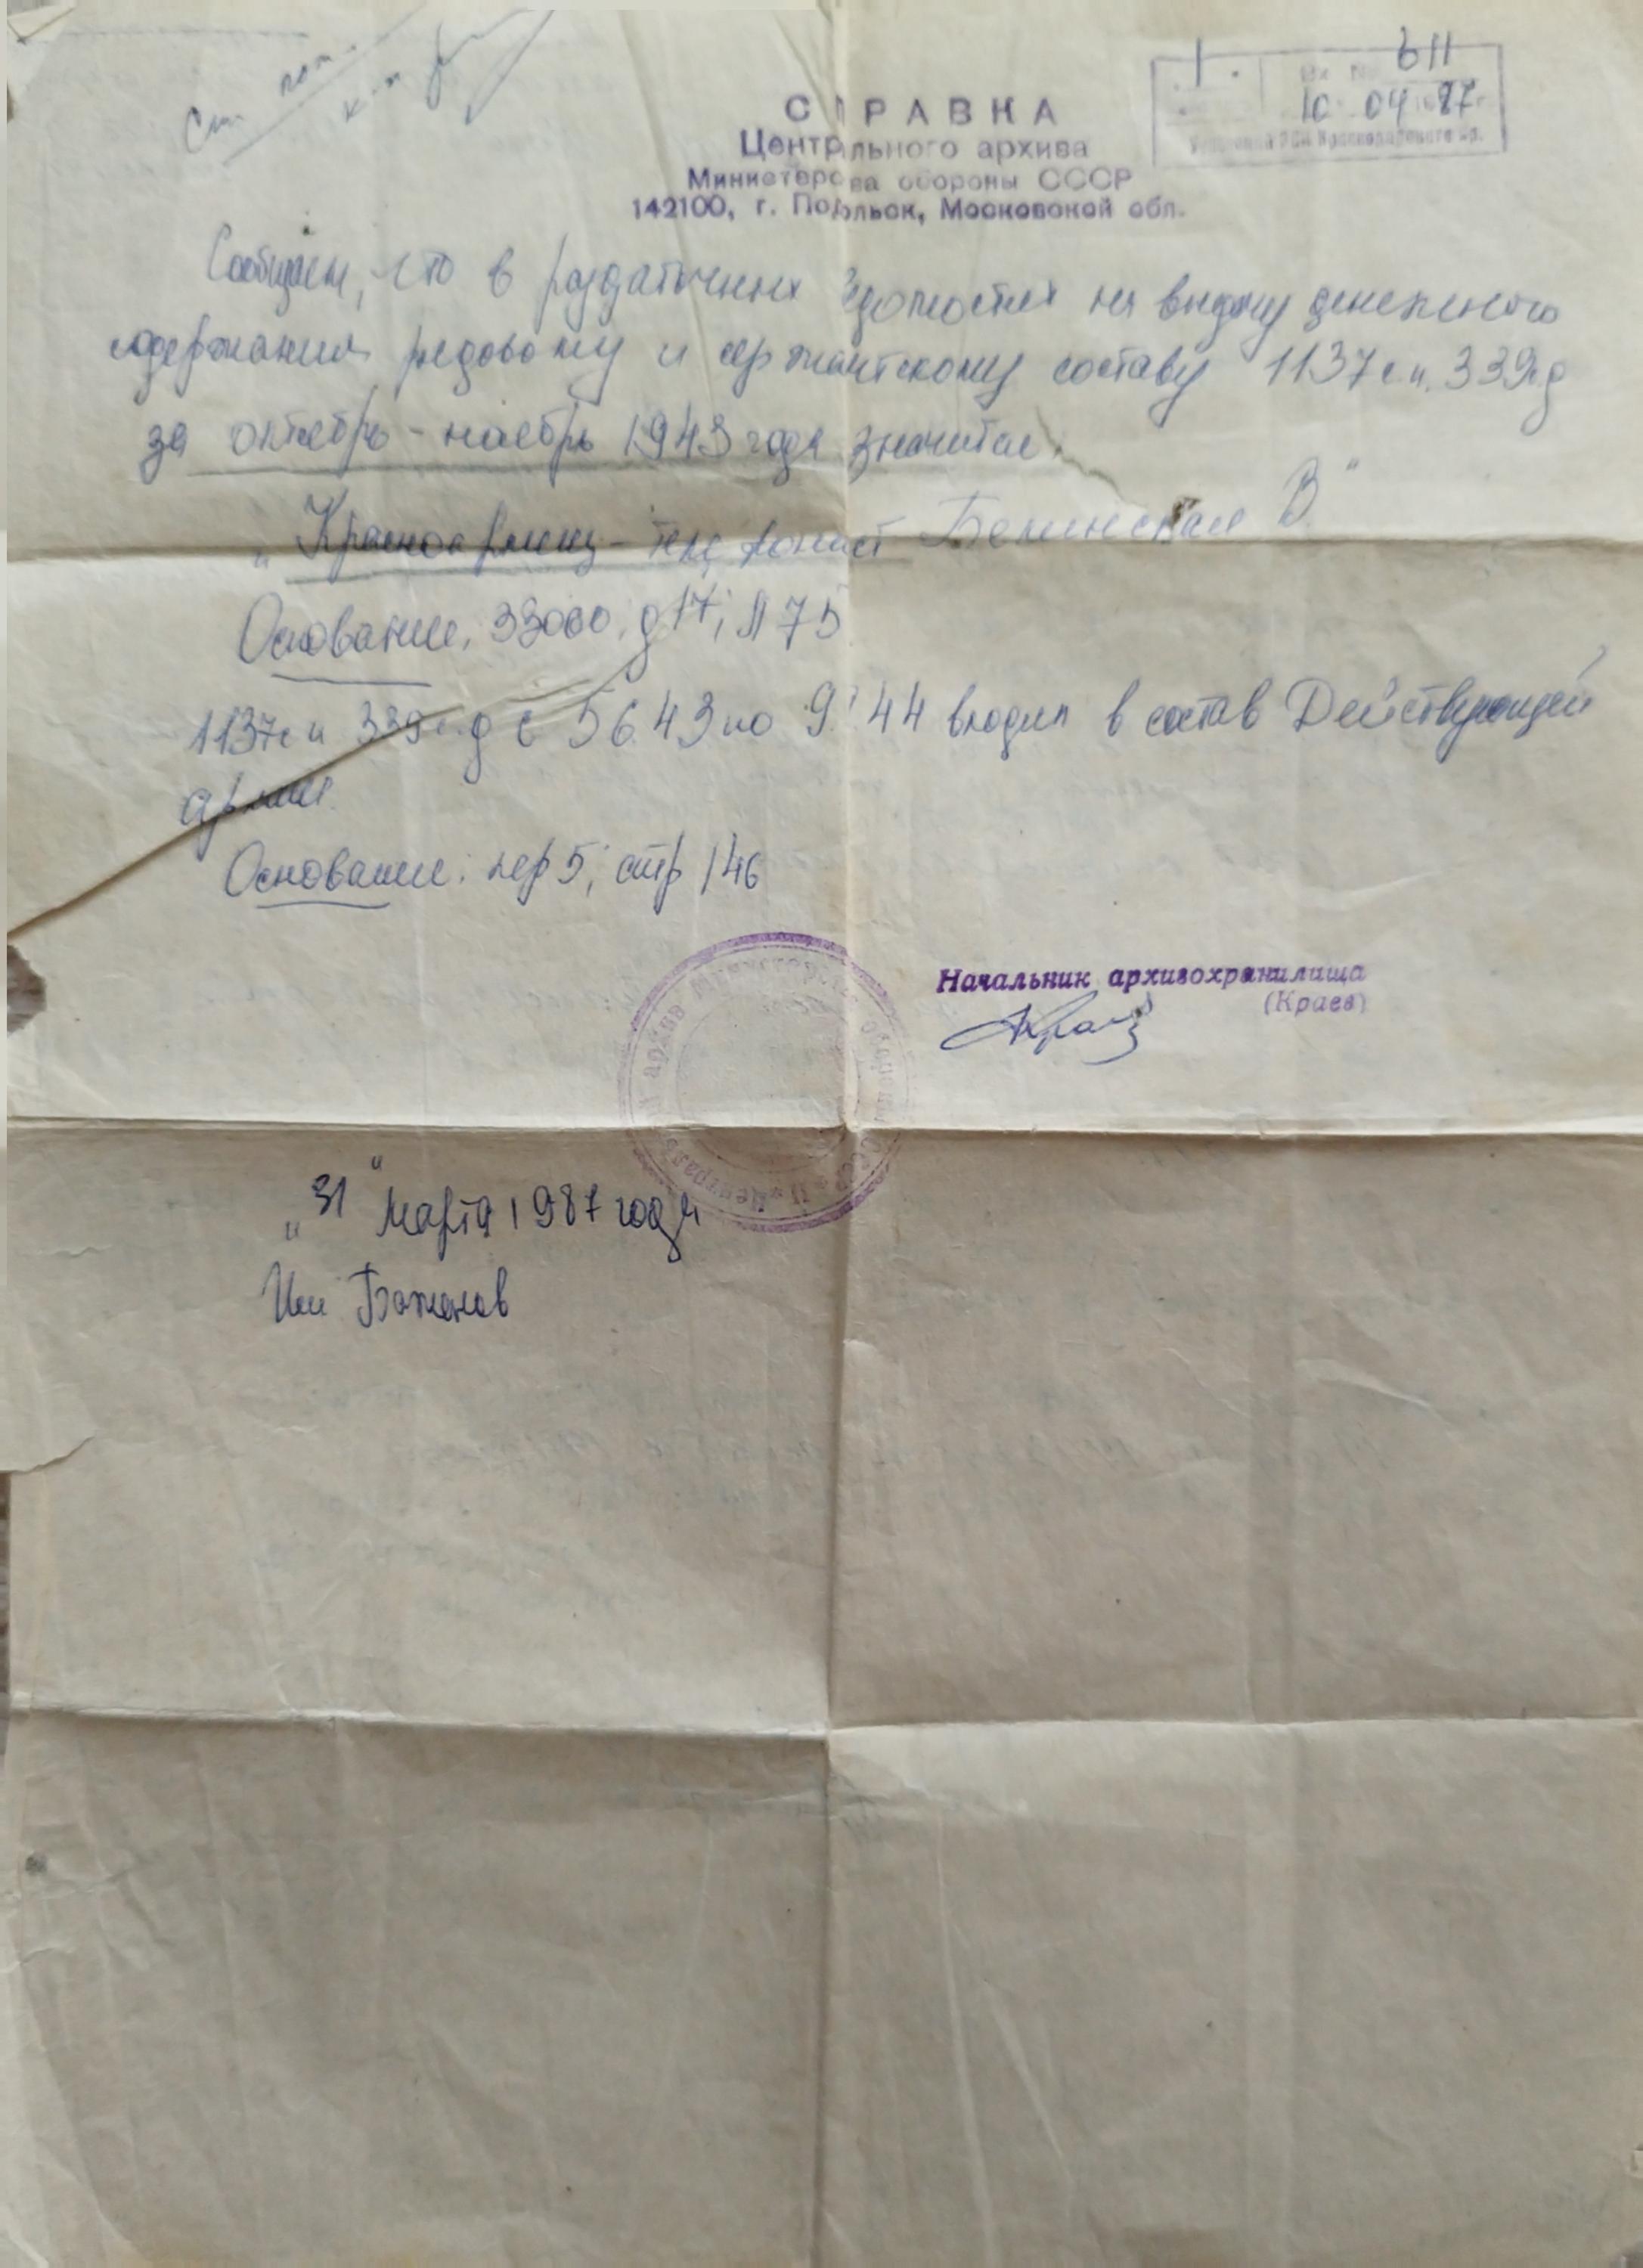 Вх № 611
10 04 1987 г.
СПРАВКА
Центрального архива
Министерства обороны СССР
142100, г. Подольск, Московской обл.
Сообщаем, что в раздаточных ведомостях на выдачу денежного
содержания рядовому и сержантскому составу 1137сп 339сд
за октябрь - ноябрь 1943 года значится:
„Красноармеец - телефонист Белинская В"
Основание: 33060, д 17, л 75
1137сп 339с.д с 5 6 43 по 9 44 входил в состав Действующей
армии.
Основание: пер 5, стр 146
Начальник архивохранилища
(Краев)
„31" марта 1987 года
Исп Баженов